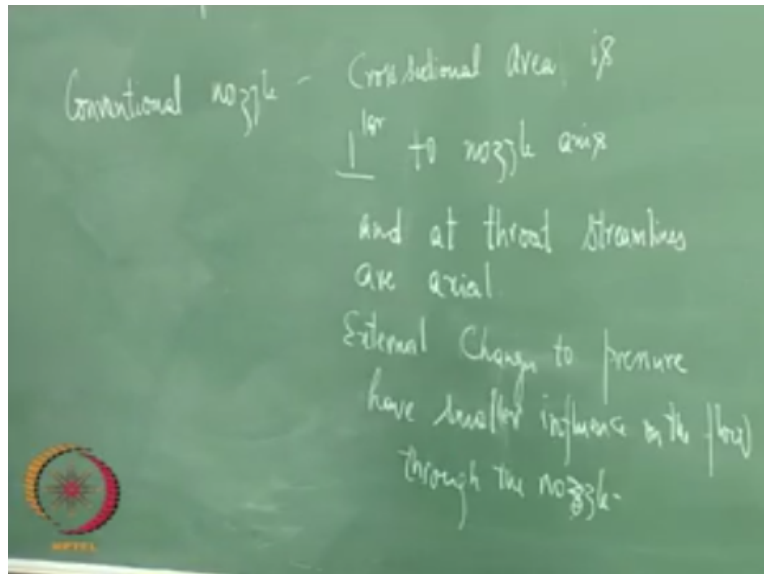 Conventional nozzle - Crossectional area is
⊥lar to nozzle axis
and at throat streamlines
are axial.
External Changes to pressure
have smaller influence on the flow
through the nozzle.
NPTEL